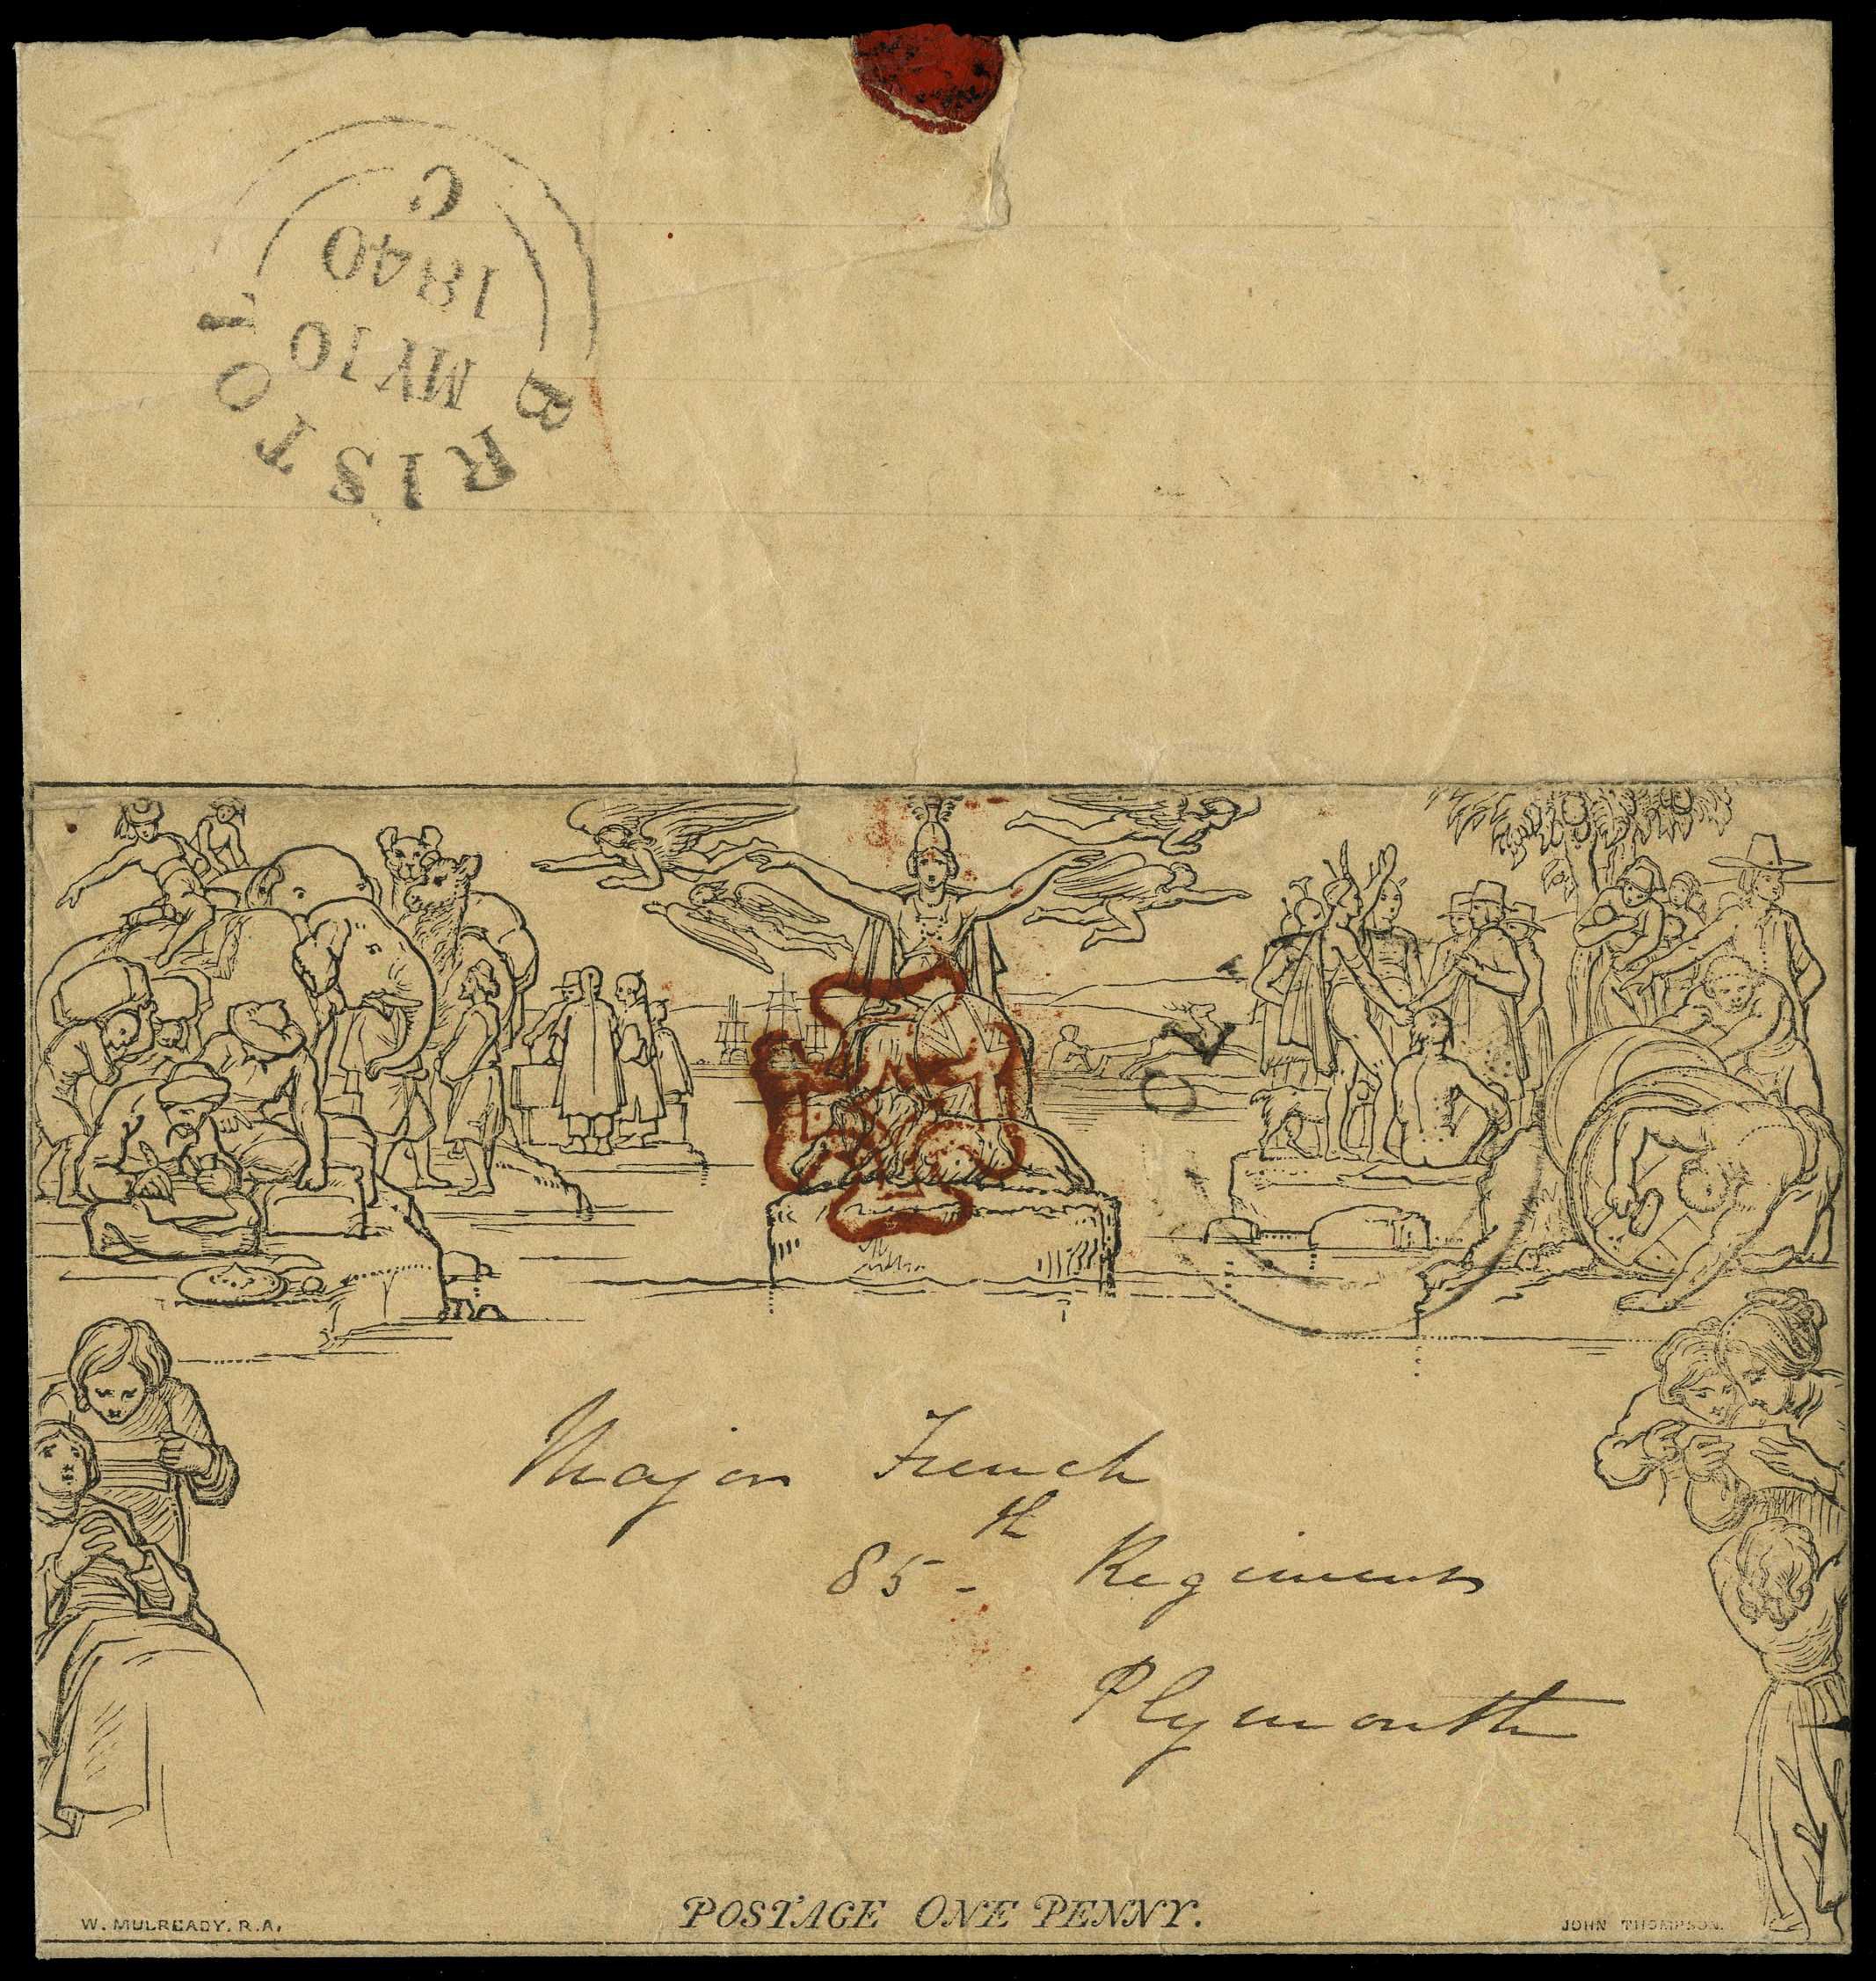 BRISTOL
MY 10
1840
C
Major French
85th Regiment
Plymouth
POSTAGE ONE PENNY.
W. MULREADY. R.A.
JOHN THOMPSON.